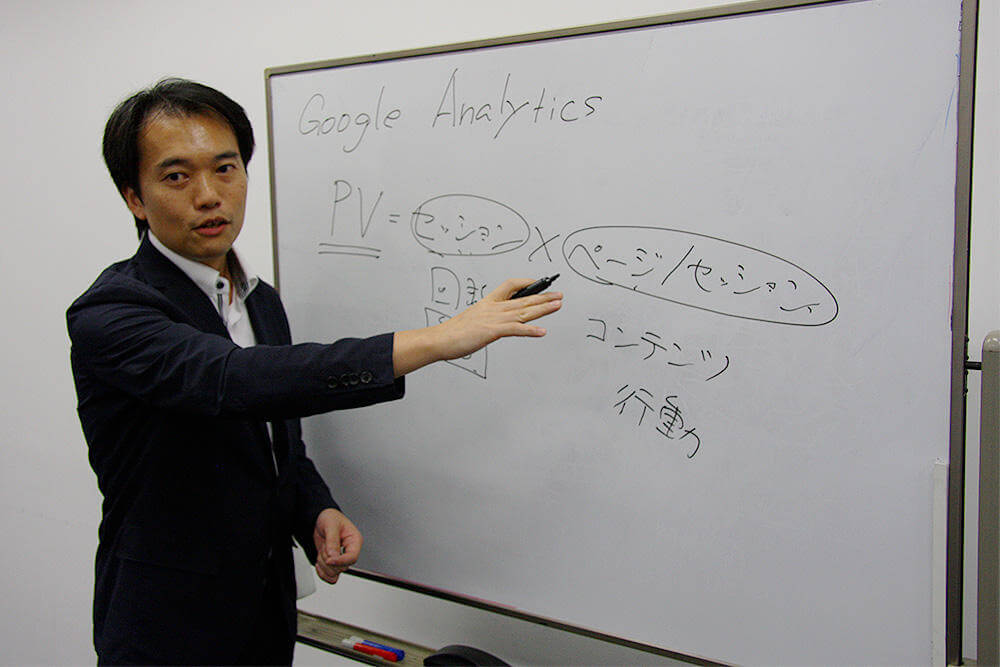 Google Analytics
PV = セッション × ページ/セッション
コンテンツ
行動